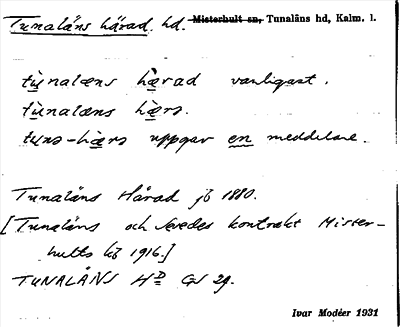 Tunaläns härad. hd. Misterhult sn, Tunaläns hd, Kalm. l.
tùnalæns hæ̀rad vanligast.
tùnalæns hæ̀rə.
tunə-hæ̀rə uppgav en meddelare.
Tunaläns Härad jb 1880.
[Tunaläns och Sevedes kontrakt Mister-
hults kb 1916.]
TUNALÄNS HD GS 29.
Ivar Modéer 1931